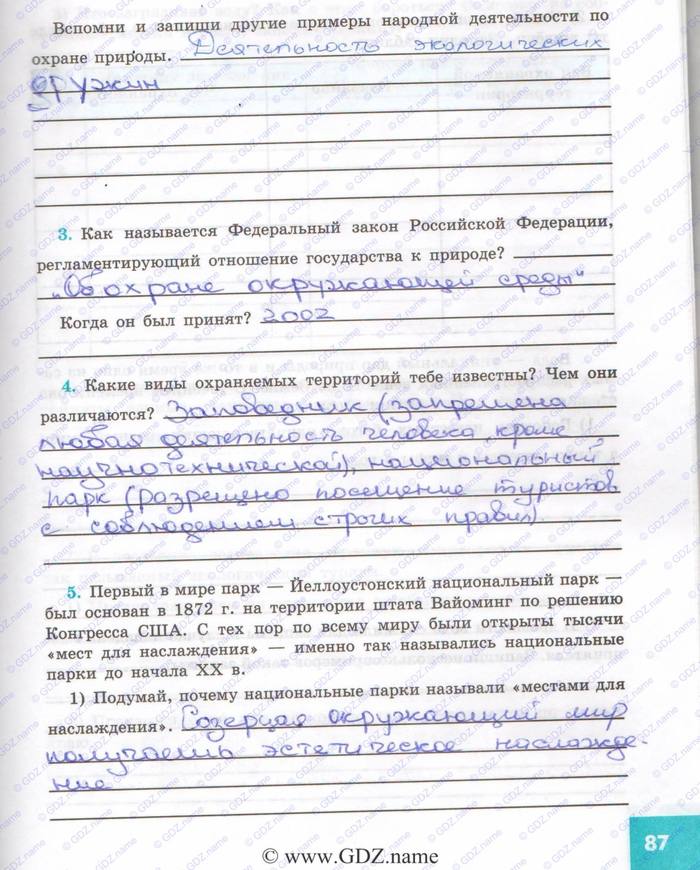 Вспомни и запиши другие примеры народной деятельности по
охране природы. Деятельность экологических
дружин
3. Как называется Федеральный закон Российской Федерации,
регламентирующий отношение государства к природе?
„Об охране окружающей среды"
Когда он был принят? 2002
4. Какие виды охраняемых территорий тебе известны? Чем они
различаются? Заповедник (запрещена
любая деятельность человека, кроме
научнотехнической), национальный
парк (разрещено посещение туристов
с соблюдением строгих правил)
5. Первый в мире парк — Йеллоустонский национальный парк —
был основан в 1872 г. на территории штата Вайоминг по решению
Конгресса США. С тех пор по всему миру были открыты тысячи
«мест для наслаждения» — именно так назывались национальные
парки до начала XX в.
1) Подумай, почему национальные парки называли «местами для
наслаждения». Созерцая окружающий мир
получаешь эстетическое наслажде-
ние
87
© www.GDZ.name